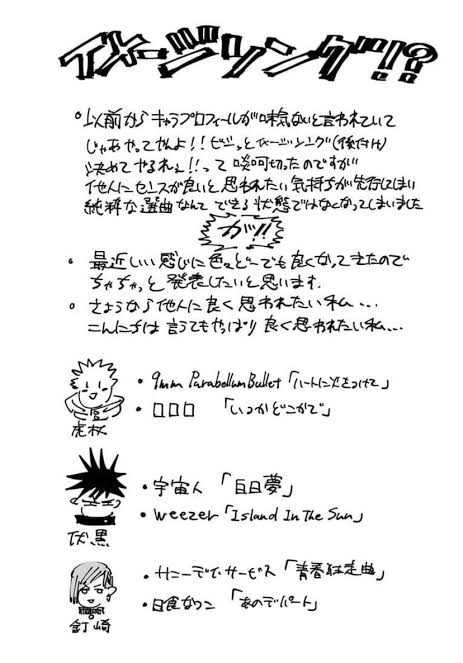 イメージソング!!?
。以前からキャラプロフィールが味気ないと言われていて
じゃあやってやんよ!!ビシっとイメージソング(後付け)
決めてやるれぇ!!って啖呵切ったのですが
他人にセンスが良いと思われたい気持ちが先行してしまい
純粋な選曲なんてできる状態ではなくなってしまいました
がッ!!
。最近いい感じに色々どーでも良くなってきたので
ちゃちゃっと発表したいと思います。
。さようなら他人に良く思われたい私...
こんにちは言うてもやっぱり良く思われたい私...
・9mm Parabellum Bullet「ハートに火をつけて」
・口口口 「いつかどこかで」
虎杖
・宇宙人 「白日夢」
・weezer「Island In The Sun」
伏黒
・サニーデイ・サービス「青春狂走曲」
・日食なつこ「あのデパート」
釘崎